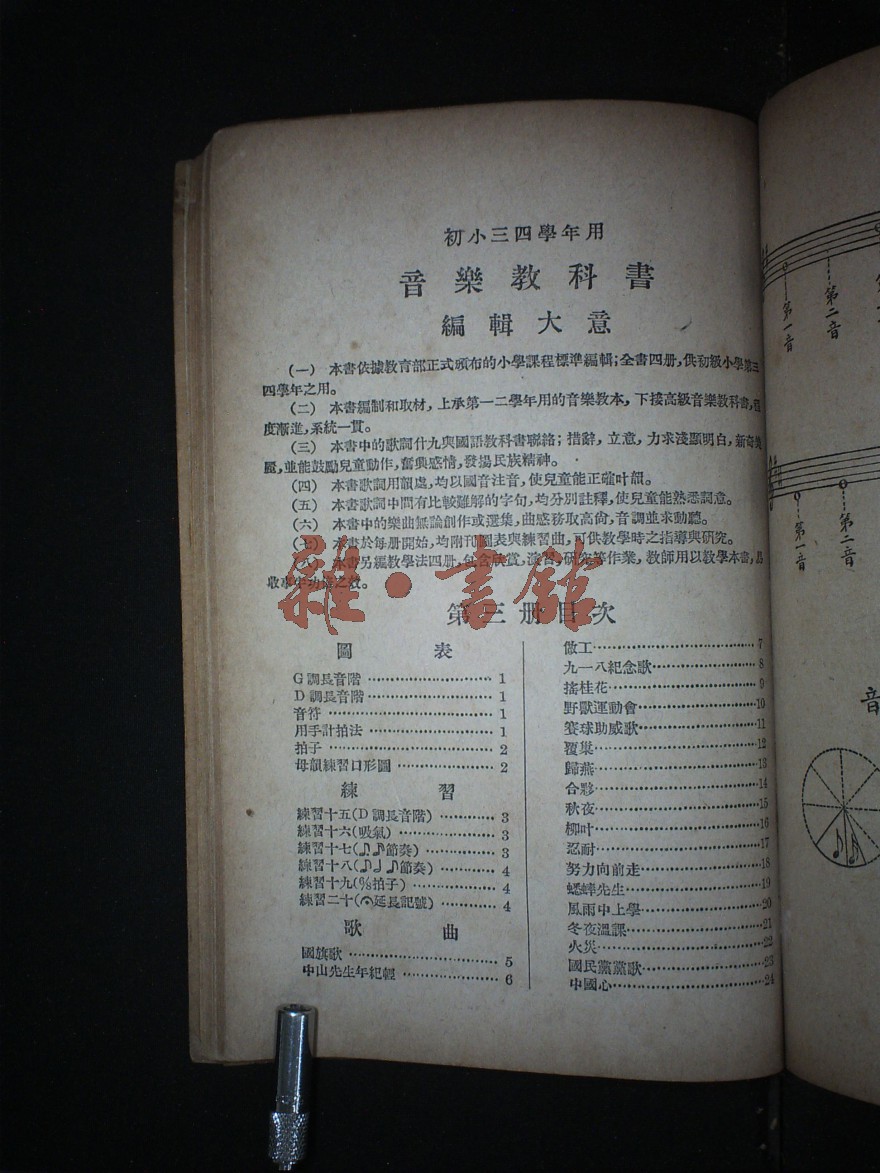 初小三四學年用
音樂教科書
編輯大意
(一) 本書依據教育部正式頒布的小學課程標準編輯;全書四册,供初級小學第三
四學年之用。
(二) 本書編制和取材,上承第一二學年用的音樂教本,下接高級音樂教科書,程
度漸進,系統一貫。
(三) 本書中的歌詞什九與國語教科書聯絡;措辭,立意,力求淺顯明白,新奇美
麗,並能鼓勵兒童動作,奮興感情,發揚民族精神。
(四) 本書歌詞用韻處,均以國音注音,使兒童能正確叶韻。
(五) 本書歌詞中間有比較難解的字句,均分別註釋,使兒童能熟悉詞意。
(六) 本書中的樂曲無論創作或選集,曲感務取高尙,音調並求動聽。
(七) 本書於每册開始,均附刊圖表與練習曲,可供教學時之指導與研究。
(八) 本書另編教學法四册,包含欣賞,演習,研究等作業,教師用以教學本書,
收事半功倍之效。
雜·書館
第三册目次
圖表
G調長音階 1
D調長音階 1
音符 1
用手計拍法 1
拍子 2
母韻練習口形圖 2
練習
練習十五(D調長音階) 3
練習十六(吸氣) 3
練習十七(♪.♪節奏) 3
練習十八(♪♩♪節奏) 4
練習十九(6/8拍子) 4
練習二十(𝄐延長記號) 4
歌曲
國旗歌 5
中山先生年紀輕 6
做工 7
九一八紀念歌 8
搖桂花 9
野獸運動會 10
賽球助威歌 11
覆巢 12
歸燕 13
合夥 14
秋夜 15
柳叶 16
忍耐 17
努力向前走 18
蟋蟀先生 19
風雨中上學 20
冬夜溫課 21
火災 22
國民黨黨歌 23
中國心 24
第一音
第二音
第一音
第二音
音